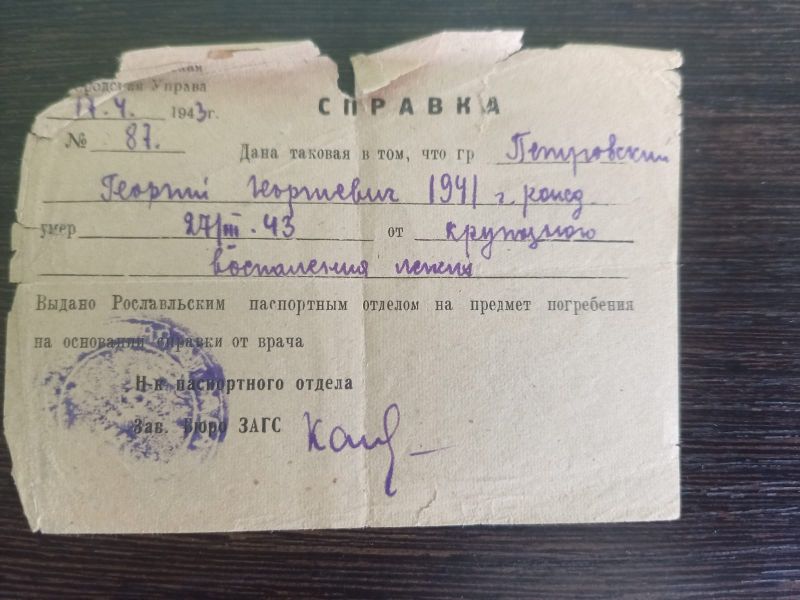 Городская Управа
17.4. 1943г.
СПРАВКА
№ 87.
Дана таковая в том, что гр Петровский
Георгий Георгиевич 1941 г. рожд.
умер 27/III.43 от крупозного
воспаления легких
Выдано Рославльским паспортным отделом на предмет погребения
на основании справки от врача
Н-к паспортного отдела
Зав. Бюро ЗАГС